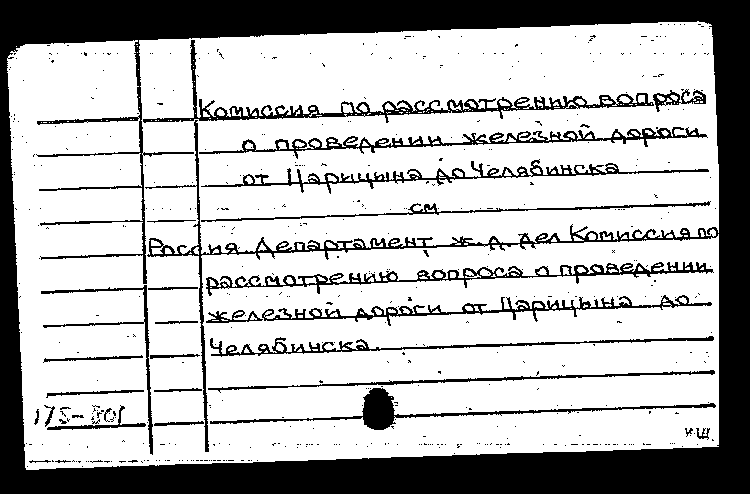 Комиссия по рассмотрению вопроса
о проведении железной дороги
от Царицына до Челябинска
см
Россия Департамент ж. д. дел Комиссия по
рассмотрению вопроса о проведении
железной дороги от Царицына до
Челябинска.
175-801
кш